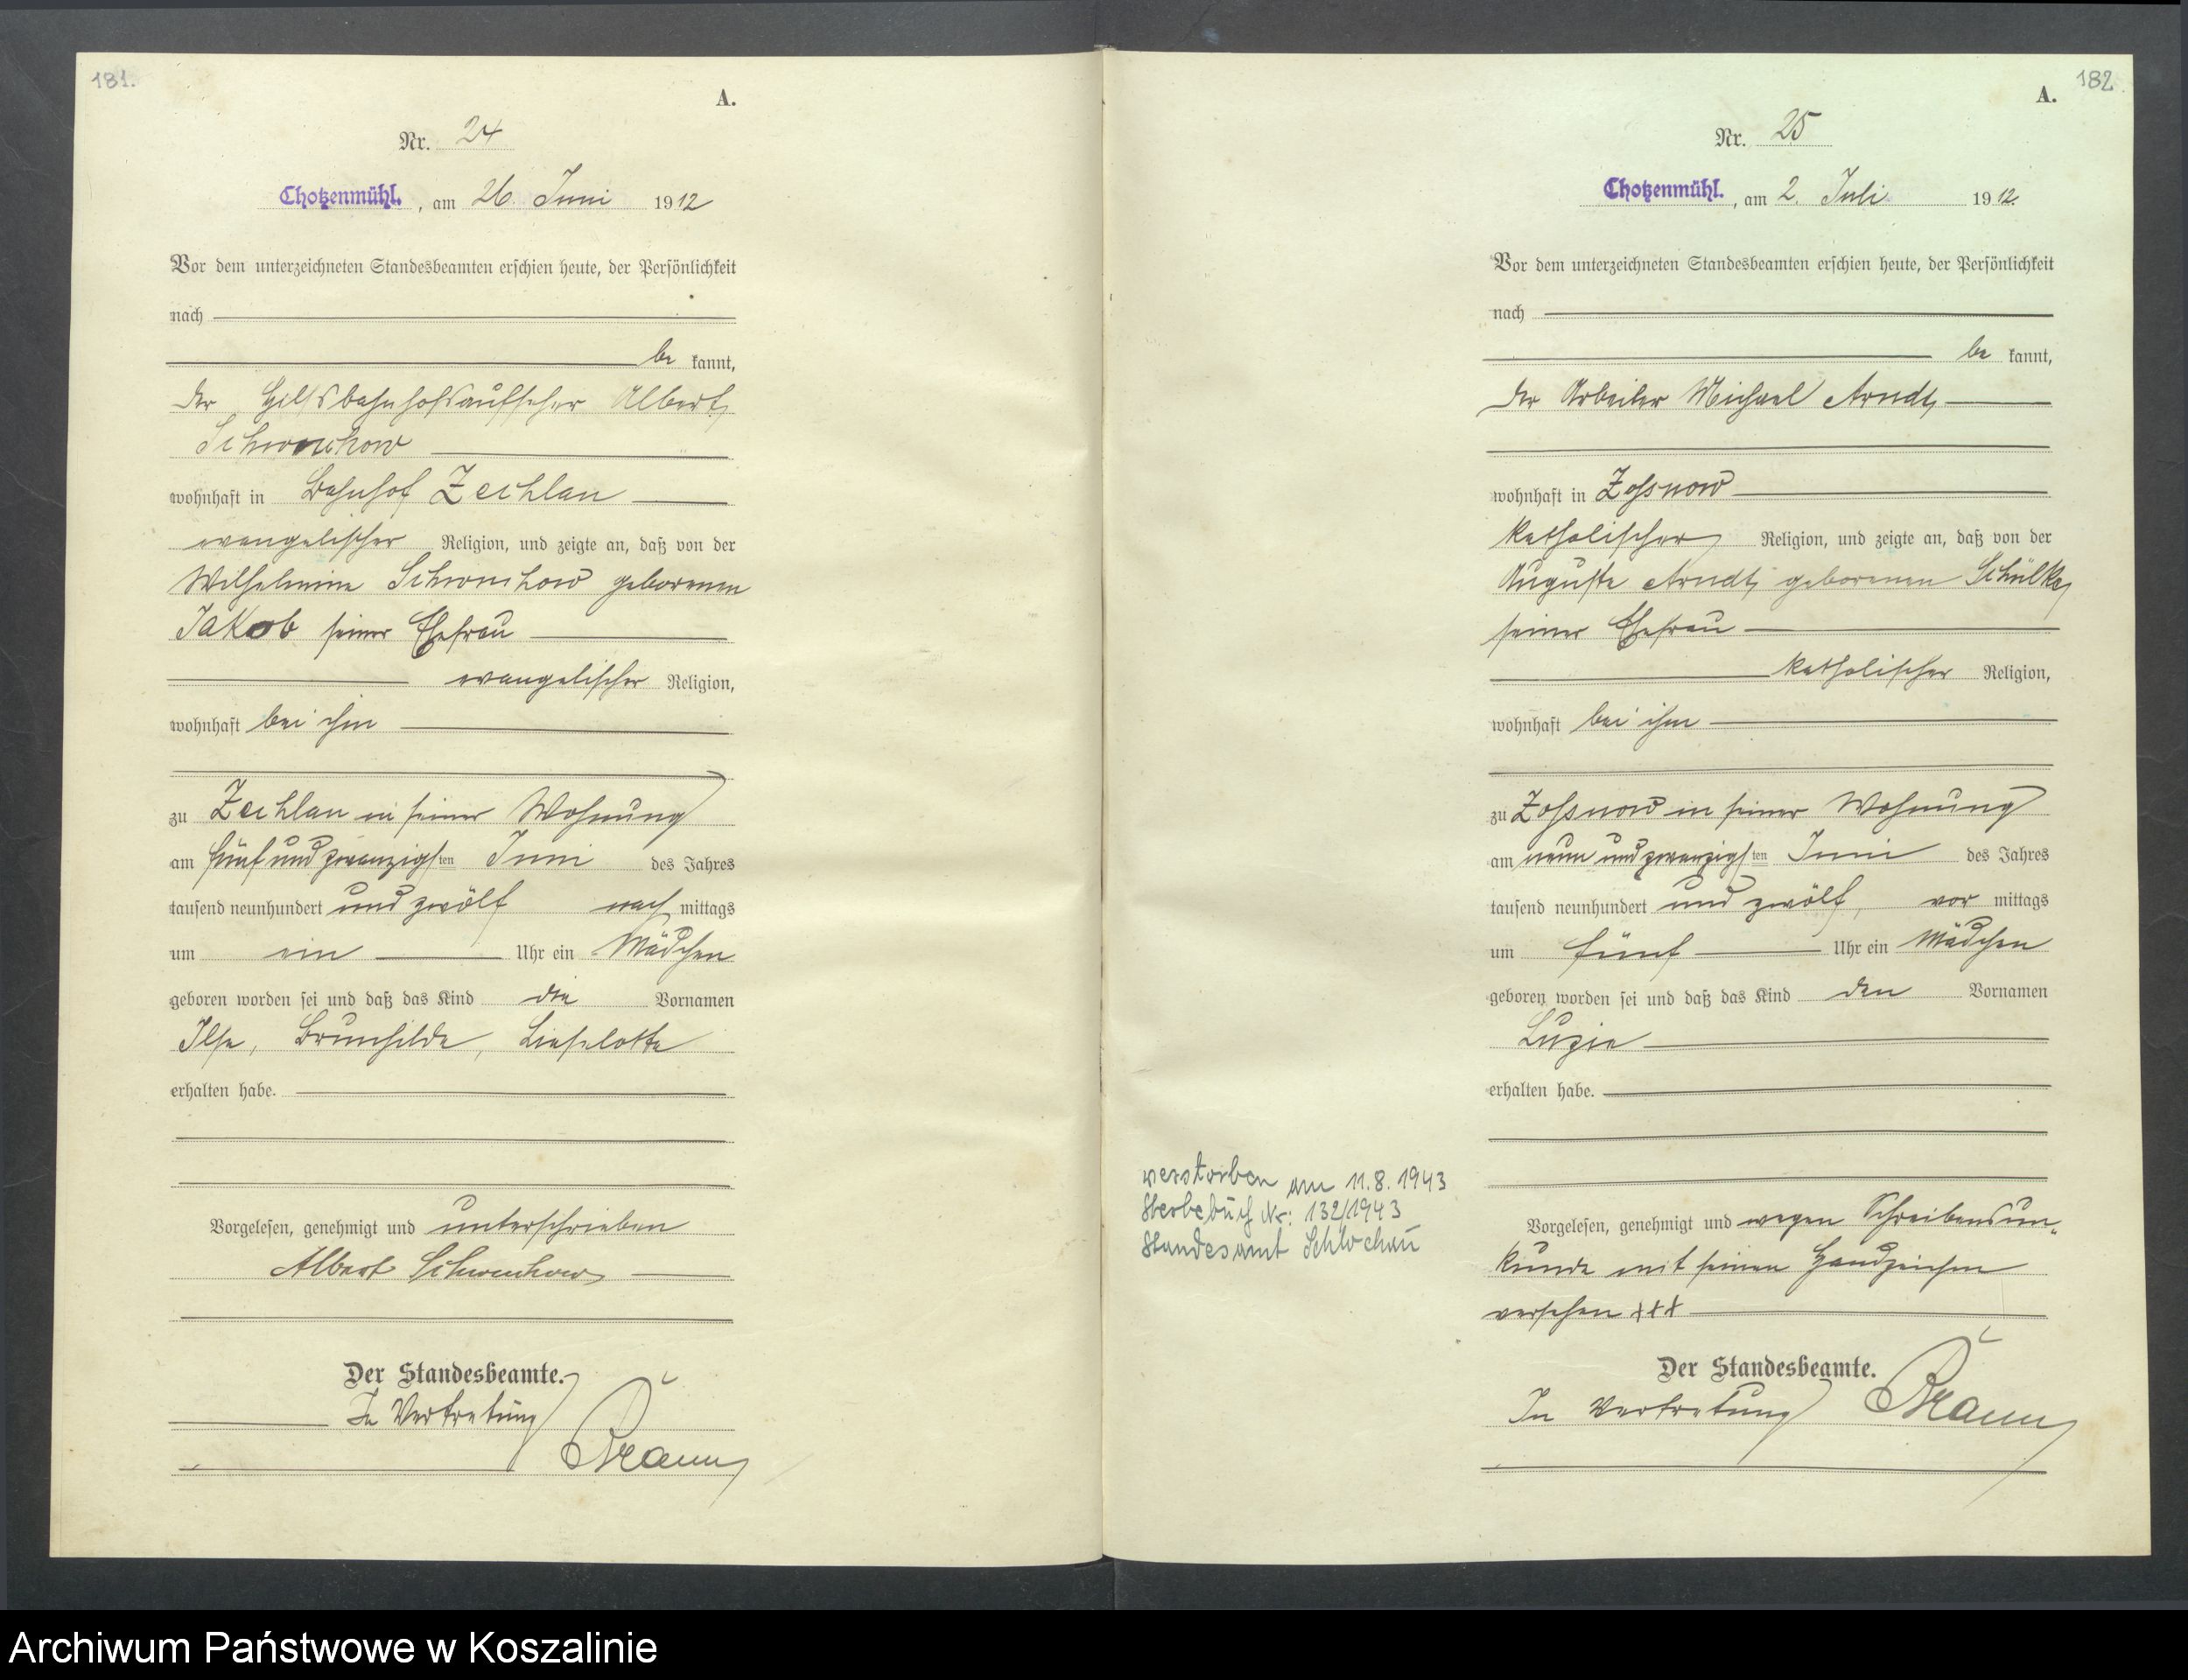 181.
A.
Nr. 24
Chotzenmühl. , am 26 Juni 1912
Vor dem unterzeichneten Standesbeamten erschien heute, der Persönlichkeit
nach
be kannt,
der Hilfsbahnhofsaufseher Albert
wohnhaft in Bahnhof Zechlau
evangelischer Religion, und zeigte an, daß von der
Wilhelmine geborenen
Jakob seiner Ehefrau
evangelischer Religion,
wohnhaft bei ihm
zu Zechlau in seiner Wohnung
am fünf und zwanzigsten Juni des Jahres
tausend neunhundert und zwölf nach mittags
um ein Uhr ein Mädchen
geboren worden sei und daß das Kind die Vornamen
Ilse, Brunhilde, Lieselotte
erhalten habe.
Vorgelesen, genehmigt und unterschrieben
Albert
Der Standesbeamte.
In Vertretung
182
A.
Nr. 25
Chotzenmühl. , am 2. Juli 1912.
Vor dem unterzeichneten Standesbeamten erschien heute, der Persönlichkeit
nach
be kannt,
der Arbeiter Michael Arndt,
wohnhaft in Zossnow
katholischer Religion, und zeigte an, daß von der
Auguste Arndt, geborenen Schülke,
seiner Ehefrau
katholischer Religion,
wohnhaft bei ihm
zu Zossnow in seiner Wohnung
am neun und zwanzigsten Juni des Jahres
tausend neunhundert und zwölf, vor mittags
um fünf Uhr ein Mädchen
geboren worden sei und daß das Kind den Vornamen
Luzie
erhalten habe.
verstorben am 11.8.1943
Sterbebuch Nr: 132/1943
Standesamt Schlochau
Vorgelesen, genehmigt und wegen Schreibensun-
kunde mit seinen Handzeichen
versehen +++
Der Standesbeamte.
In Vertretung
Archiwum Państwowe w Koszalinie